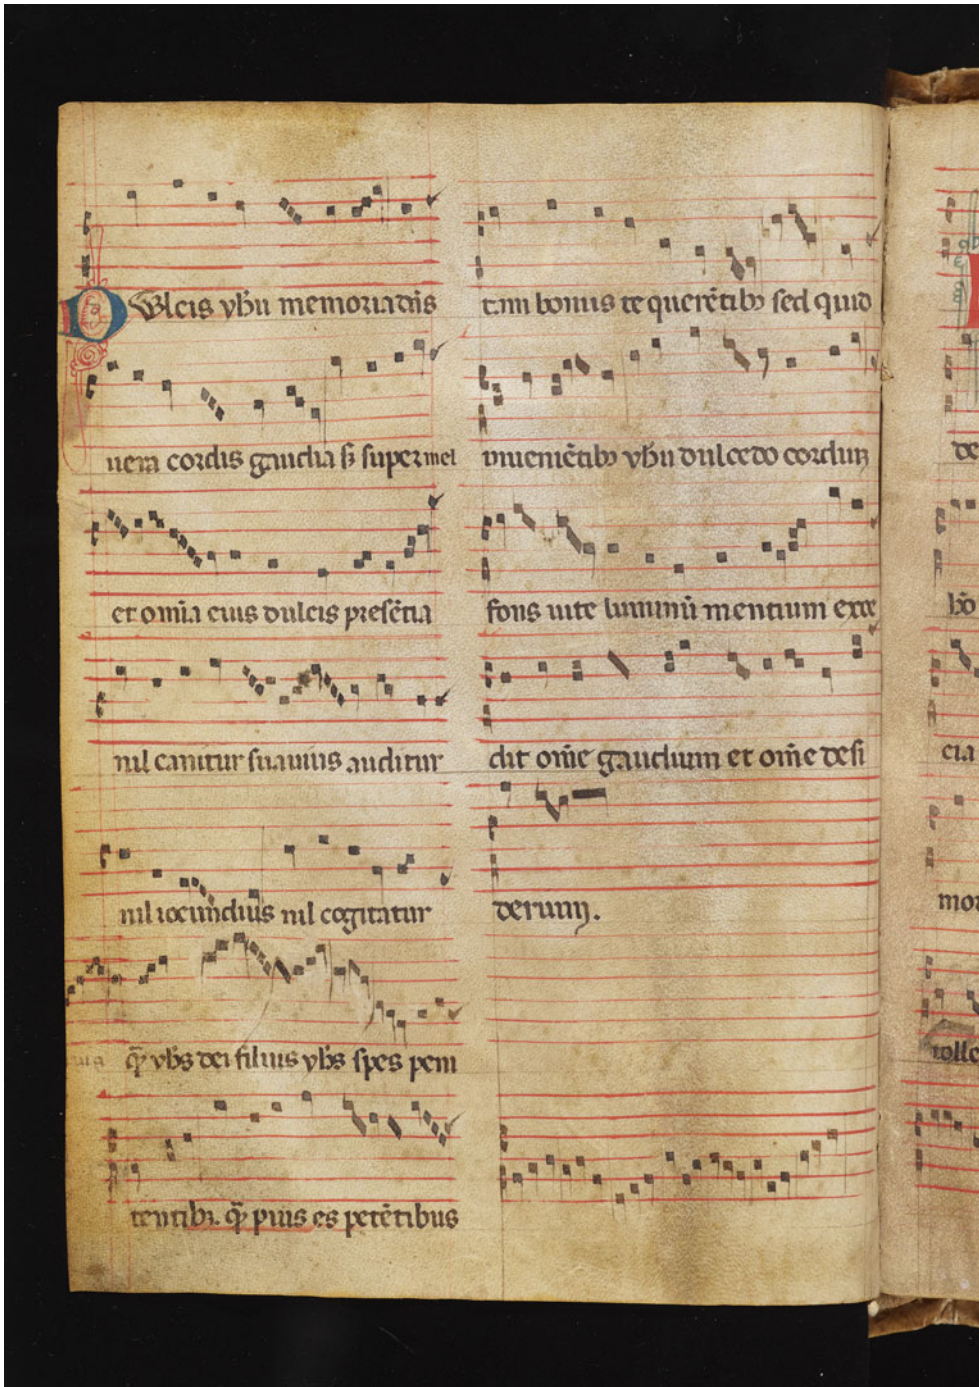 Dulcis yhũ memoria dãs
uera cordis gaudia s̃ super mel
et om̃ia eius dulcis presẽtia
nil canitur suauius auditur
nil iocundius nil cogitatur
q̃ yh̃s dei filius yh̃s spes peni
tentibꝫ. q̃ pius es petẽtibus
tam bonus te querẽtibꝫ sed quid
inueniẽtibꝫ yhũ dulcedo cordium
fons uite luminũ mentium exce
dit om̃e gaudium et om̃e desi
derium.
de
bo
cia
mor
tolle